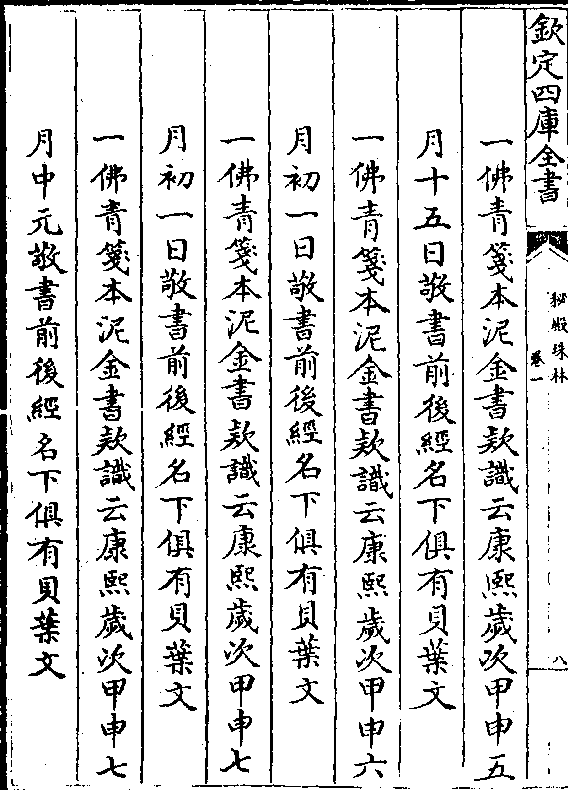 欽定四庫全書
秘殿珠林
卷一
八
一佛青箋本泥金書款識云康熙歲次甲申五
月十五日敬書前後經名下俱有貝葉文
一佛青箋本泥金書款識云康熙歲次甲申六
月初一日敬書前後經名下俱有貝葉文
一佛青箋本泥金書款識云康熙歲次甲申七
月初一日敬書前後經名下俱有貝葉文
一佛青箋本泥金書款識云康熙歲次甲申七
月中元敬書前後經名下俱有貝葉文